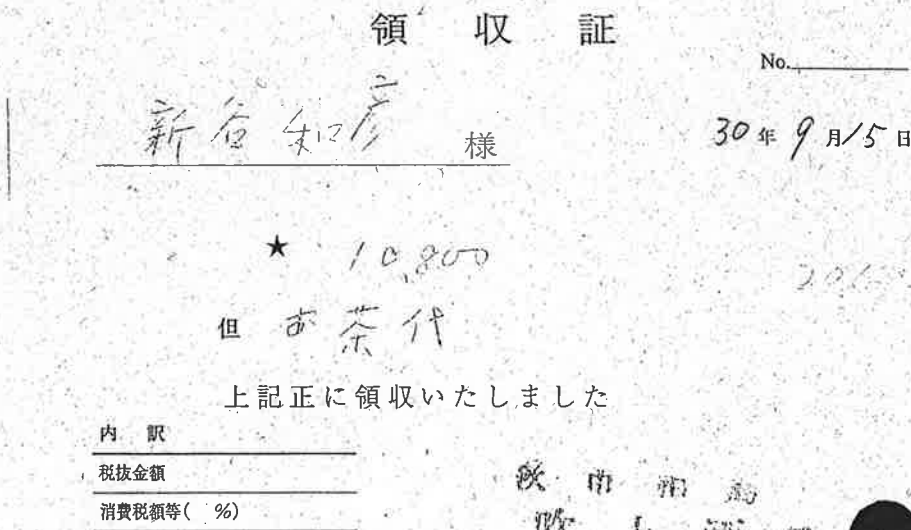 領収証
No.
新谷和彦 様
30年9月15日
★ 10,800
但 お茶代
上記正に領収いたしました
内訳
税抜金額
消費税額等( %)